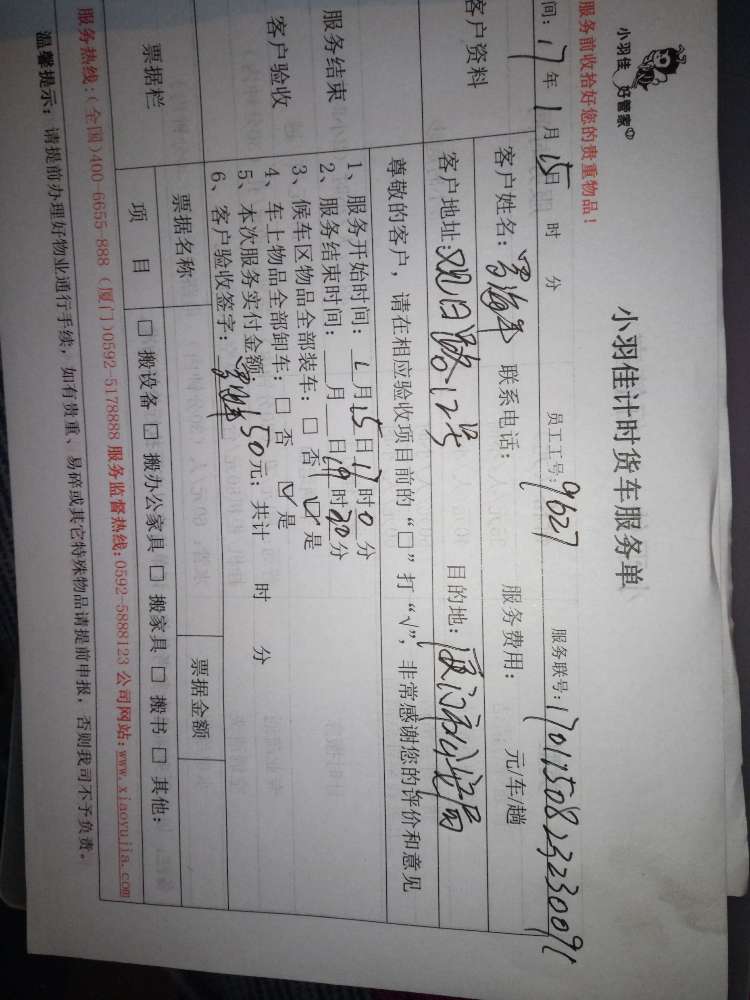 小羽佳 好管家
小羽佳计时货车服务单
服务前收拾好您的贵重物品!
员工工号: 9627
服务联号: 1701150823230091
间: 17年 1月 15日 时 分
客户资料
客户姓名: 联系电话: 服务费用: 元/车/趟
客户地址: 观日路12号 目的地: 厦门市公安局
尊敬的客户, 请在相应验收项目前的“□”打“√”, 非常感谢您的评价和意见
服务结束
客户验收
1、服务开始时间: 1月15日17时0分
2、服务结束时间: 月 日19时30分
3、候车区物品全部装车: □ 否 ☑ 是
4、车上物品全部卸车: □ 否 ☑ 是
5、本次服务实付金额: 150元; 共计 时 分
6、客户验收签字:
票据栏
票据名称 票据金额
项目 □ 搬设备 □ 搬办公家具 □ 搬家具 □ 搬书 □ 其他:
服务热线:(全国)400-6655-888 (厦门)0592-5178888 服务监督热线:0592-5888123 公司网站:www.xiaoyujia.com
温馨提示: 请提前办理好物业通行手续, 如有贵重、易碎或其它特殊物品请提前申报, 否则我司不予负责。